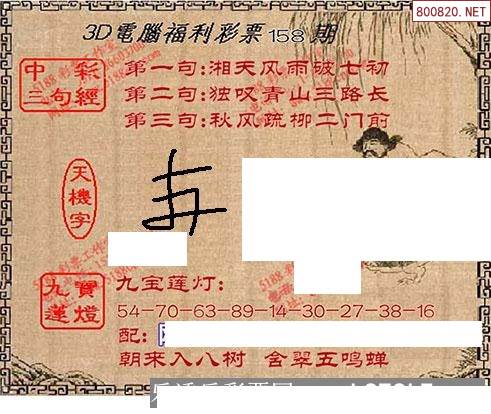 800820.NET
3D電腦福利彩票158期
中彩
三句經
第一句:湘天风雨破七初
第二句:独叹青山三路长
第三句:秋风疏柳二门前
天機字
九寶
蓮燈
九宝莲灯:
54-70-63-89-14-30-27-38-16
配:
朝来入八树 含翠五鸣蝉